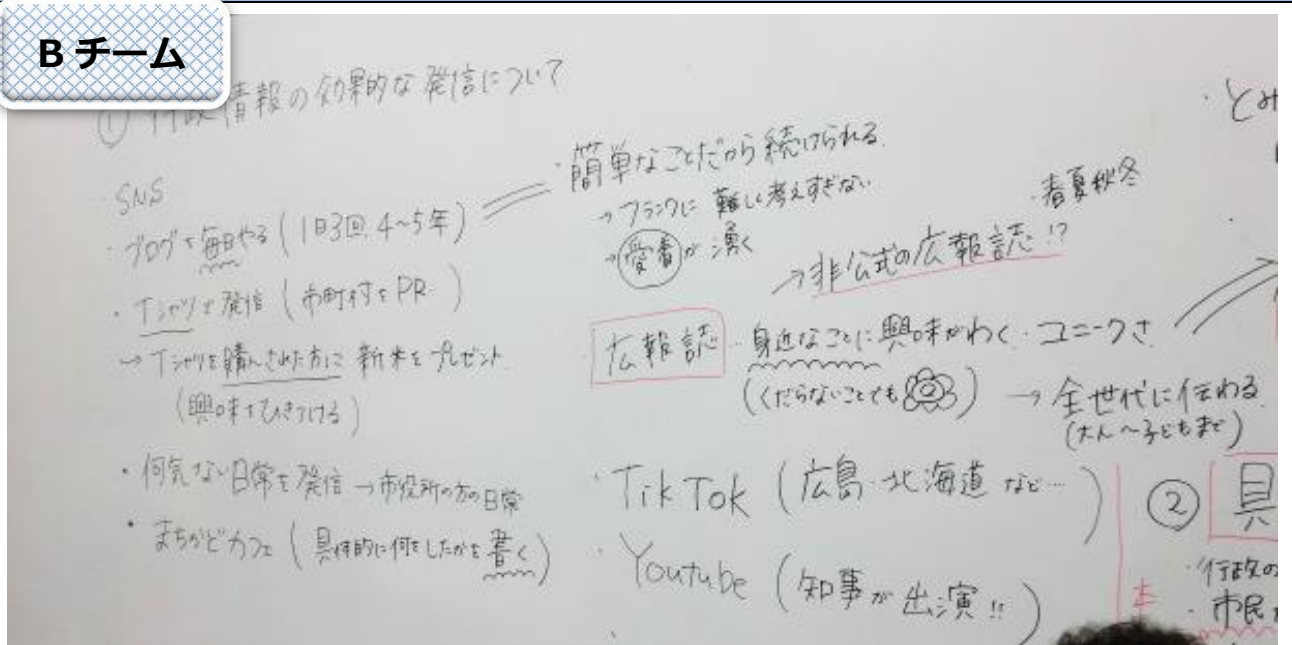 Bチーム
① 行政情報の効果的な発信について
・SNS
・ブログを毎日やる(1日3回、4~5年)
・Tシャツで発信(市町村をPR)
→Tシャツを購入された方に新米をプレゼント
(興味をひきつける)
・何気ない日常を発信→市役所の方の日常
・まちかどカフェ(具体的に何をしたかを書く)
・簡単なことだから続けられる
→フランクに 難しく考えすぎない
→愛着が湧く
→非公式の広報誌!?
・春夏秋冬
広報誌 身近なことに興味がわく・ユニークさ
(くだらないことでも)→全世代に伝わる
(大人~子どもまで)
・TikTok(広島・北海道など…)
・Youtube(知事が出演!!)
・とみ
② 具
・行政の
・市民